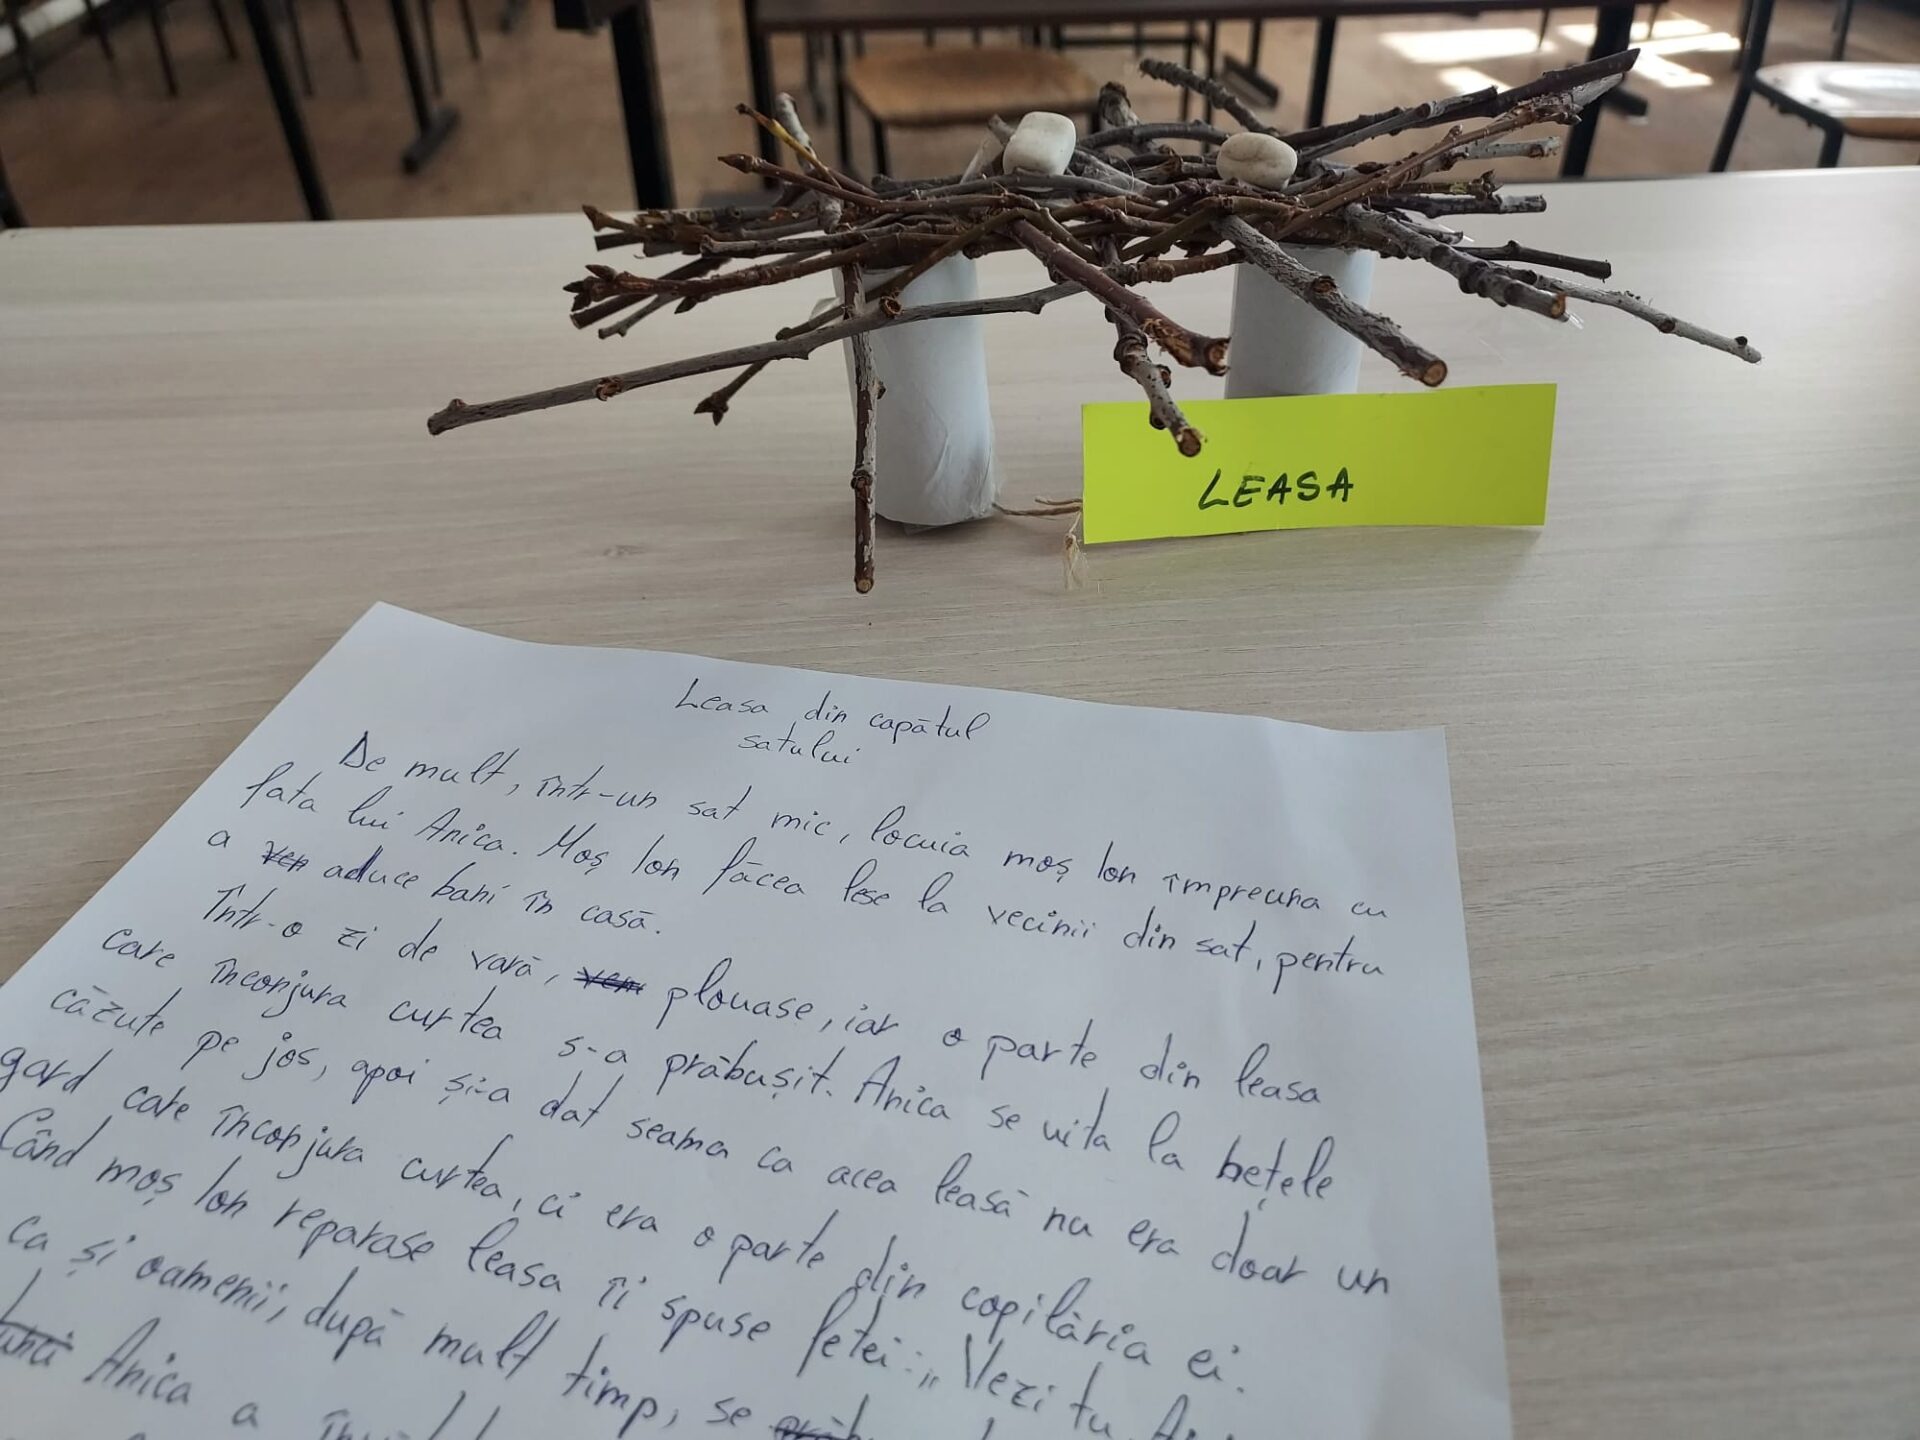 LEASA
Leasa din capătul
satului
De mult, într-un sat mic, locuia moș Ion împreuna cu
fata lui Anica. Moș Ion făcea lese la vecinii din sat, pentru
a ven aduce bani în casă.
Într-o zi de vară, ven plouase, iar o parte din leasa
care înconjura curtea s-a prăbușit. Anica se uita la bețele
căzute pe jos, apoi și-a dat seama ca acea leasă nu era doar un
gard care înconjura curtea, ci era o parte din copilăria ei.
Când moș Ion reparase leasa îi spuse fetei: „Vezi tu,
ca și oamenii, după mult timp, se
Anica a